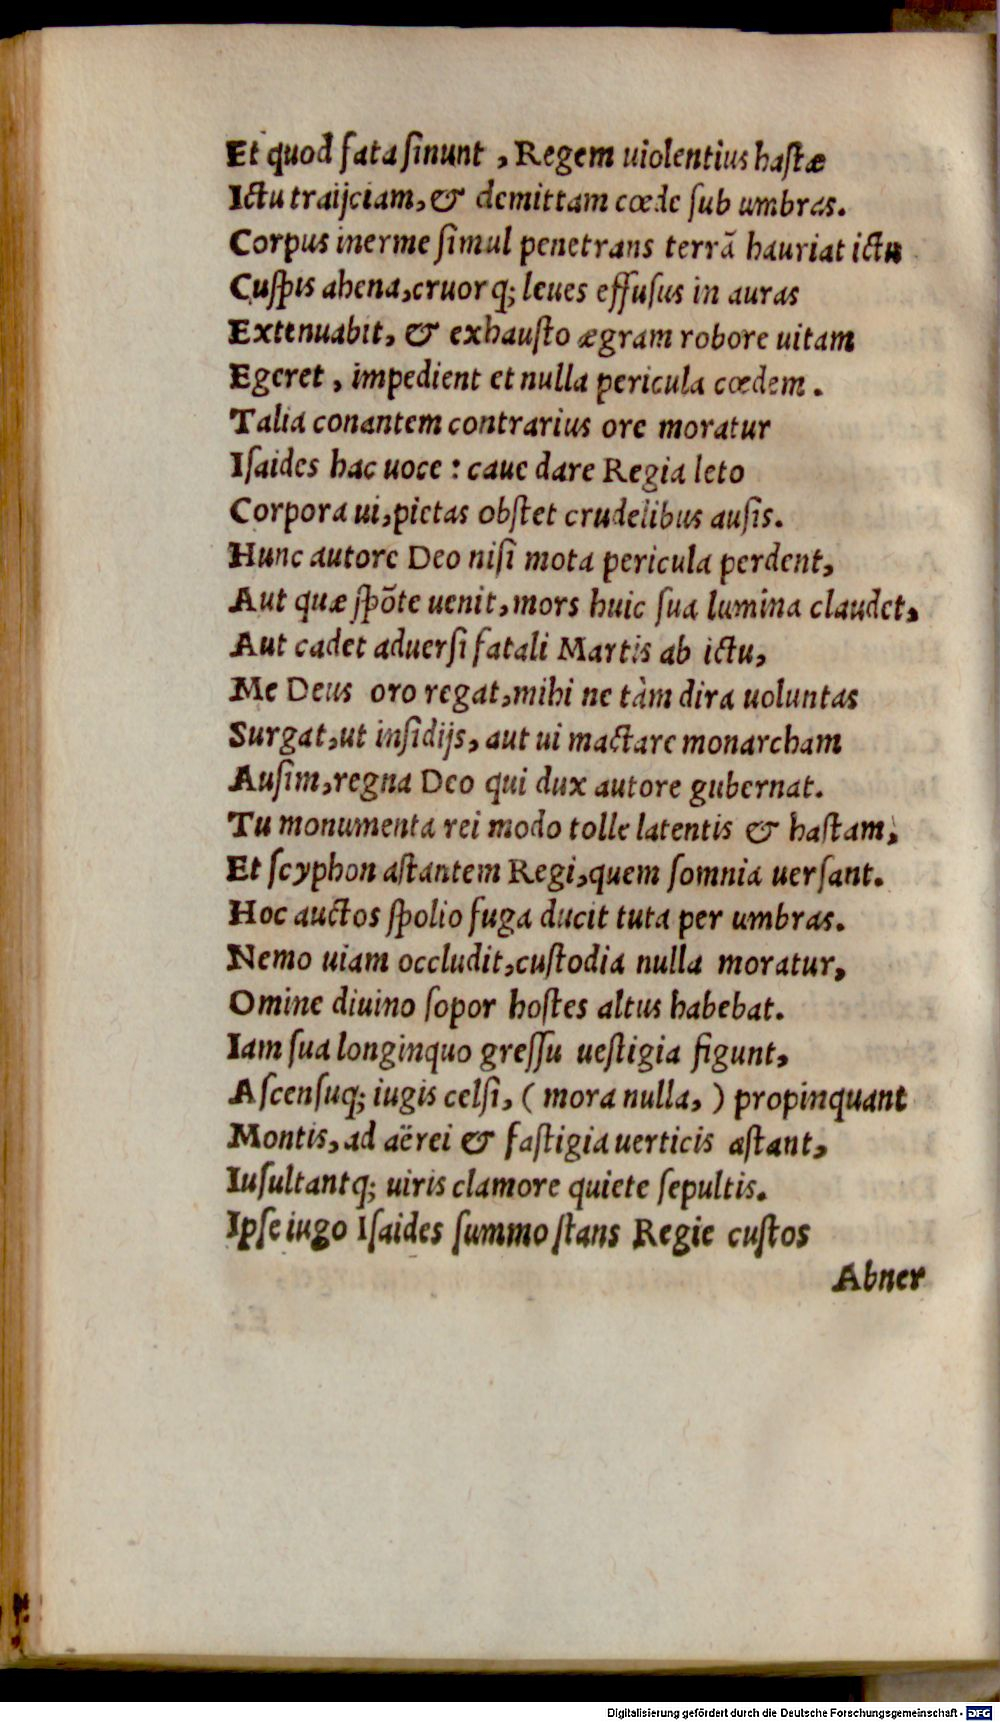 Et quod fata ſinunt , Regem uiolentius haſtæ
Ictu traijciam, & demittam cœde ſub umbras.
Corpus inerme ſimul penetrans terrã hauriat ictu
Cuſpis ahena, cruorq; leues effuſus in auras
Extenuabit, & exhauſto ægram robore uitam
Egeret , impedient et nulla pericula cœdem .
Talia conantem contrarius ore moratur
Iſaides hac uoce : caue dare Regia leto
Corpora ui, pietas obſtet crudelibus auſis.
Hunc autore Deo niſi mota pericula perdent,
Aut quæ ſpõte uenit, mors huic ſua lumina claudet,
Aut cadet aduerſi fatali Martis ab ictu,
Me Deus oro regat, mihi ne tàm dira uoluntas
Surgat, ut inſidijs, aut ui mactare monarcham
Auſim, regna Deo qui dux autore gubernat.
Tu monumenta rei modo tolle latentis & haſtam,
Et ſcyphon aſtantem Regi, quem ſomnia uerſant.
Hoc auctos ſpolio fuga ducit tuta per umbras.
Nemo uiam occludit, cuſtodia nulla moratur,
Omine diuino ſopor hoſtes altus habebat.
Iam ſua longinquo greſſu ueſtigia figunt,
Aſcenſuq; iugis celſi, ( mora nulla, ) propinquant
Montis, ad aërei & faſtigia uerticis aſtant,
Iuſultantq; uiris clamore quiete ſepultis.
Ipſe iugo Iſaides ſummo ſtans Regie cuſtos
Abner
Digitalisierung gefördert durch die Deutsche Forschungsgemeinschaft - DFG